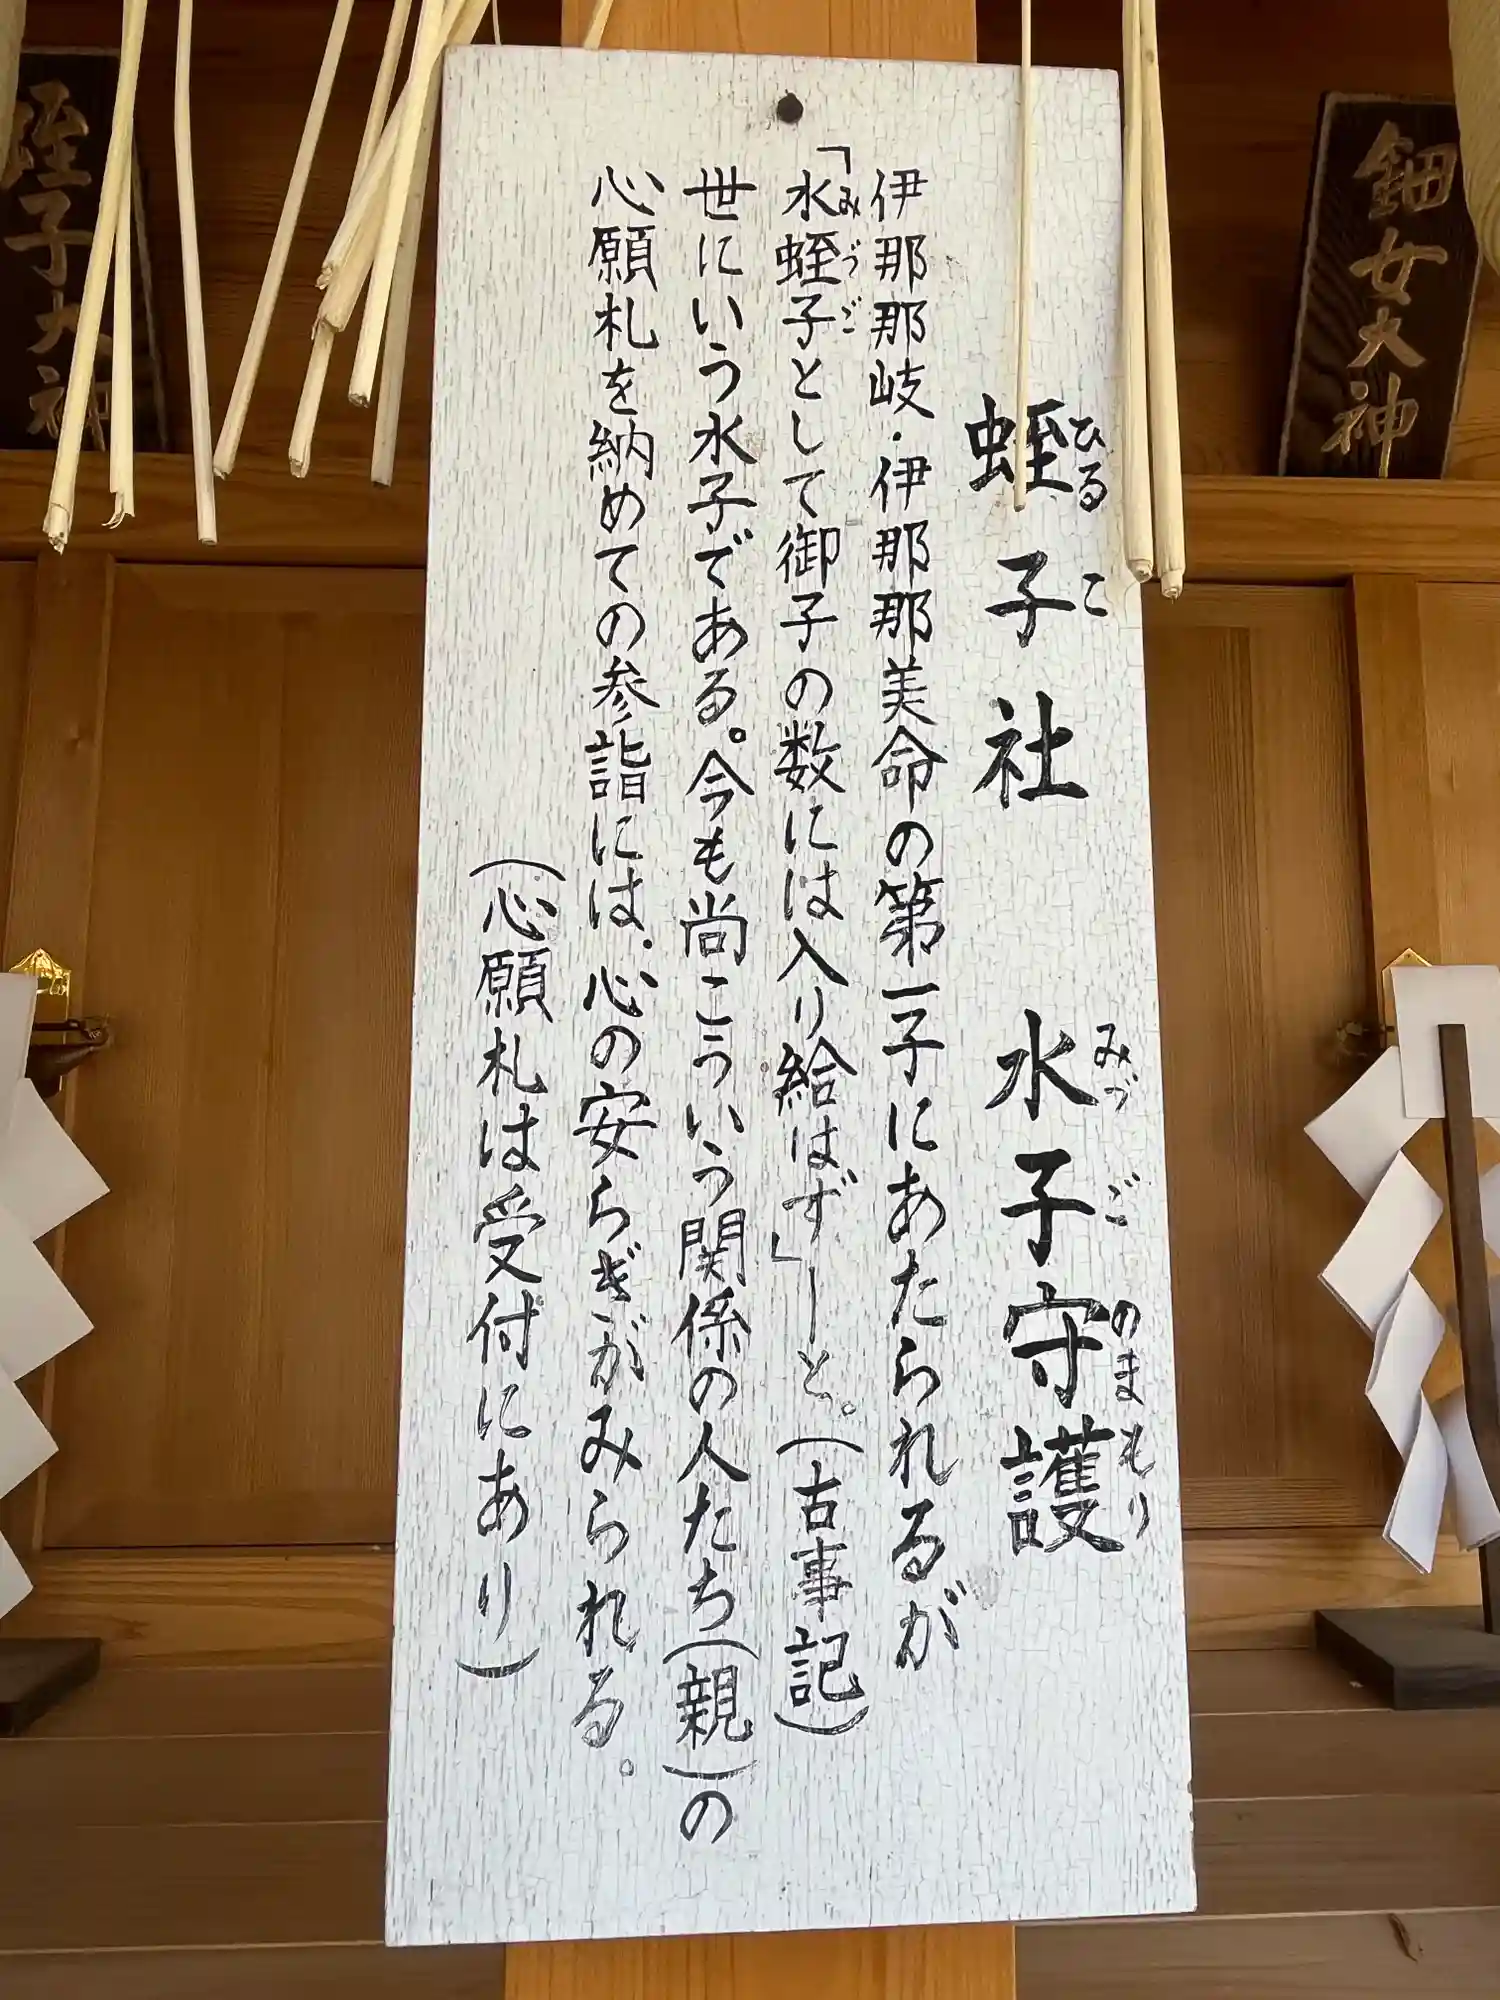 鈿女大神
蛭子社 水子守護
ひるこ みづごのまもり
伊那那岐・伊那那美命の第一子にあたられるが
「水蛭子として御子の数には入り給はず」―と。(古事記)
みづご
世にいう水子である。今も尚こういう関係の人たち(親)の
心願札を納めての参詣には、心の安らぎがみられる。
(心願札は受付にあり)
蛭子大神